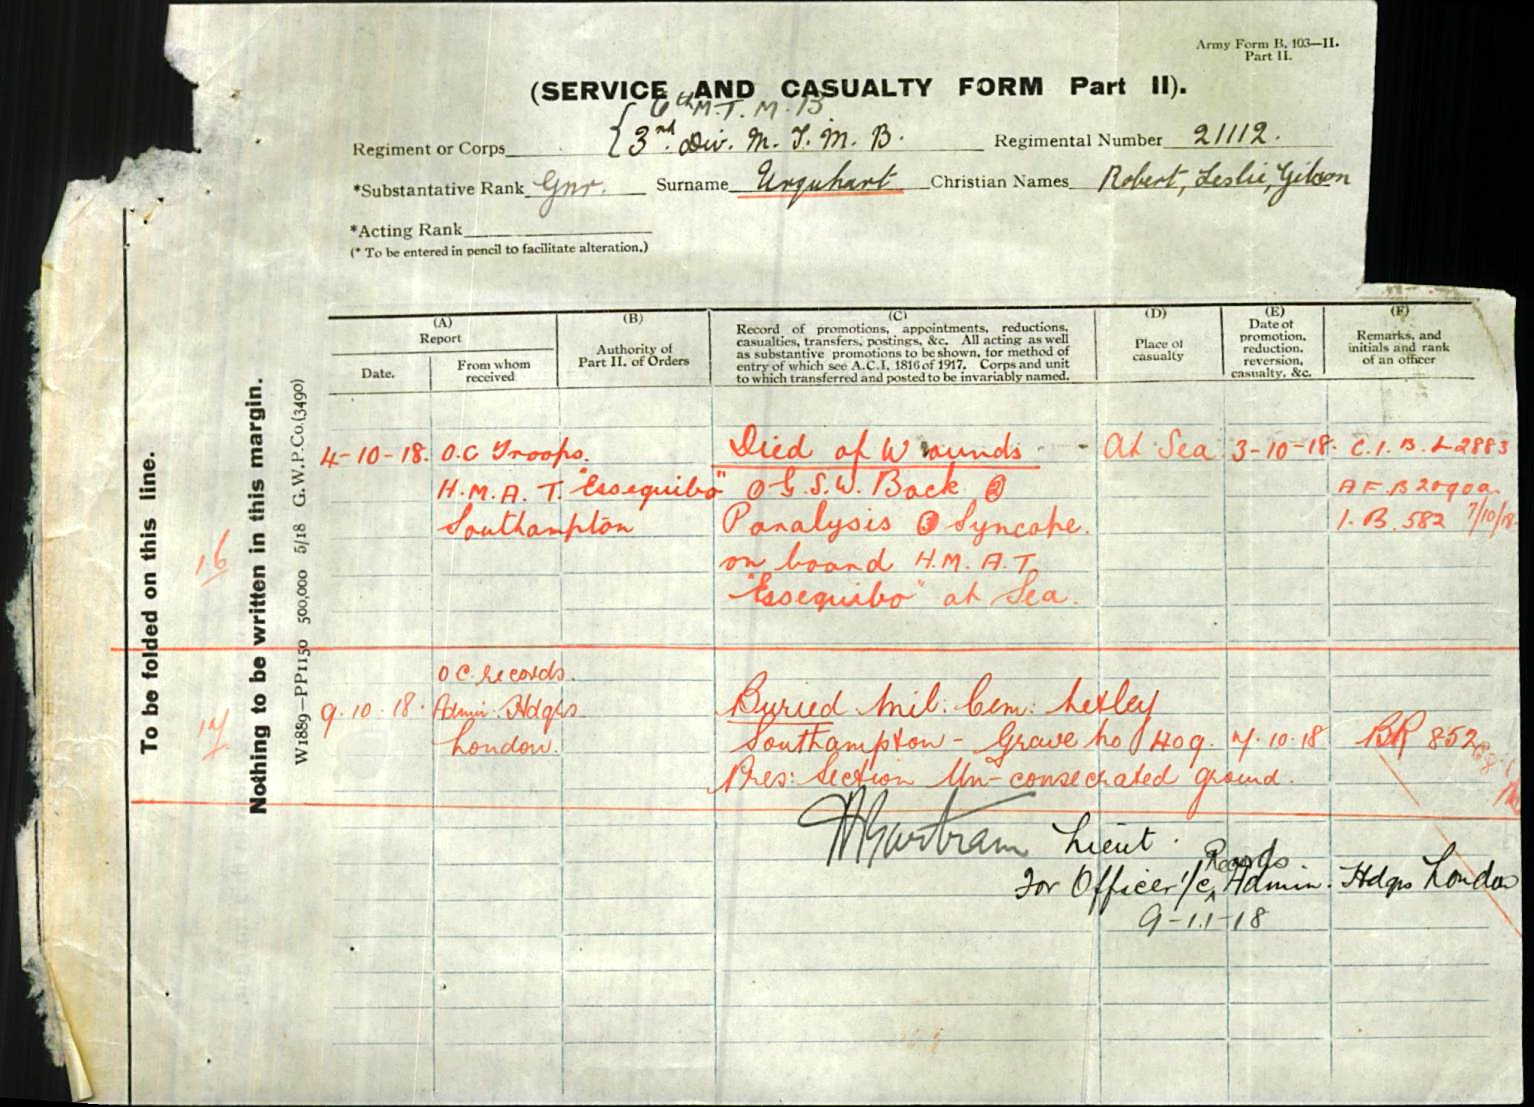 Army Form B. 103—II.
Part II.
(SERVICE AND CASUALTY FORM Part II).
6th M.T.M.B
Regiment or Corps 3rd. Div. M. T. M. B. Regimental Number 21112.
*Substantative Rank Gnr. Surname Urquhart Christian Names Robert, Leslie, Gibson
*Acting Rank
(* To be entered in pencil to facilitate alteration.)
To be folded on this line.
Nothing to be written in this margin.
W1889—PP1150 500,000 5/18 G.W.P.Co.(3490)
(A)
Report
Date.
From whom
received
(B)
Authority of
Part II. of Orders
(C)
Record of promotions, appointments, reductions,
casualties, transfers, postings, &c. All acting as well
as substantive promotions to be shown, for method of
entry of which see A.C.I. 1816 of 1917. Corps and unit
to which transferred and posted to be invariably named.
(D)
Place of
casualty
(E)
Date of
promotion,
reduction,
reversion,
casualty, &c.
(F)
Remarks, and
initials and rank
of an officer
4-10-18. O.C Troops. Died of Wounds - - At Sea 3-10-18. C.I.B. L2883
H.M.A.T. "Essequibo" ① G.S.W. Back ② A F B 2090a.
Southampton Paralysis ③ Syncope. I.B. 582 7/10/18
16 on board H.M.A.T.
"Essequibo" at Sea.
O C. records.
17 9.10.18. Admin. Hdqrs Buried Mil: Cem: Netley
London. Southampton - Grave No 1409. 7.10.18 BR 852
Pres: Section Un-consecrated ground.
Bartram Lieut.
Records
For Officer i/c Admin. Hdqrs London
9-11-18